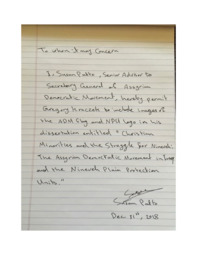 To whom It may Concern
I, Susan Patto, Senior Advisor to
Secretary General of Assyrian
Democratic Movement, hereby permit
Gregory Kruczek to include images of
the ADM flag and NPU logo in his
dissertation entitled "Christian
Minorities and the Struggle for Nineveh:
The Assyrian Democratic Movement in Iraq
and the Nineveh Plain Protection
Units."
Susan Patto
Dec 21st, 2018